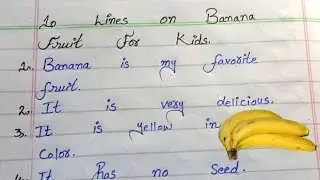 10 Lines on Banana
Fruit For Kids.
1. Banana is my favorite
fruit.
2. It is very delicious.
3. It is yellow in
Color.
4. It has no Seed.